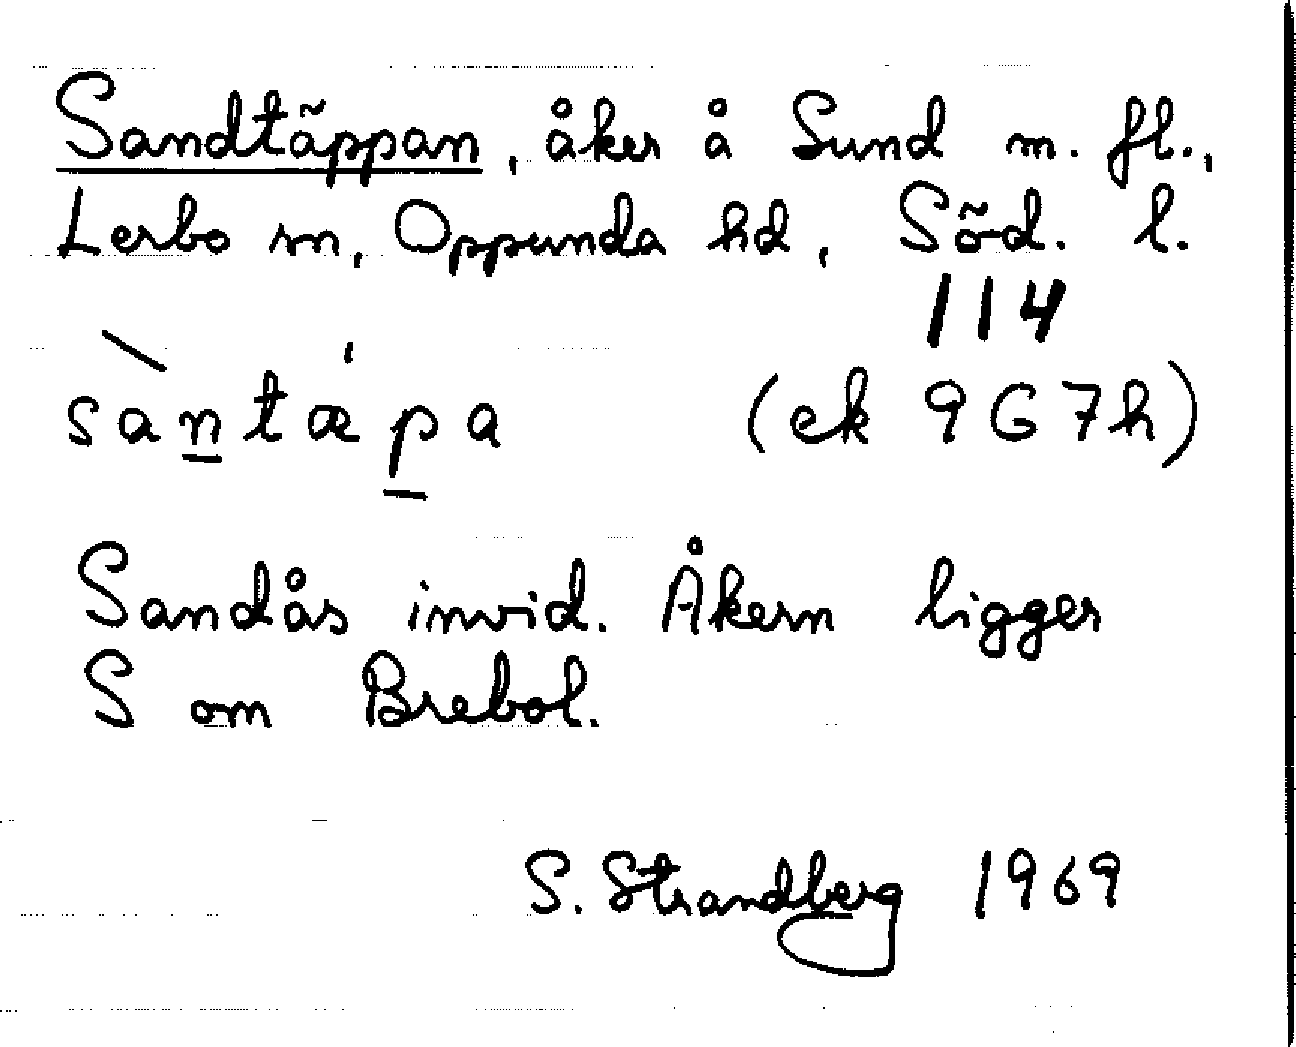 Sandtäppan, åker å Sund m. fl.,
Lerbo sn, Oppunda hd, Söd. l.
114
sàn̲tæ̍p̲a (ek 9G7h)
Sandås invid. Åkern ligger
S om Brebol.
S. Strandberg 1969